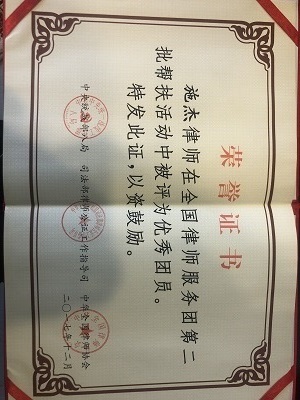 荣誉证书
施杰律师在全国律师服务团第二
批帮扶活动中被评为优秀团员。
特发此证，以资鼓励。
中央统战部八局 司法部律师公证工作指导司 中华全国律师协会
二〇一七年十二月